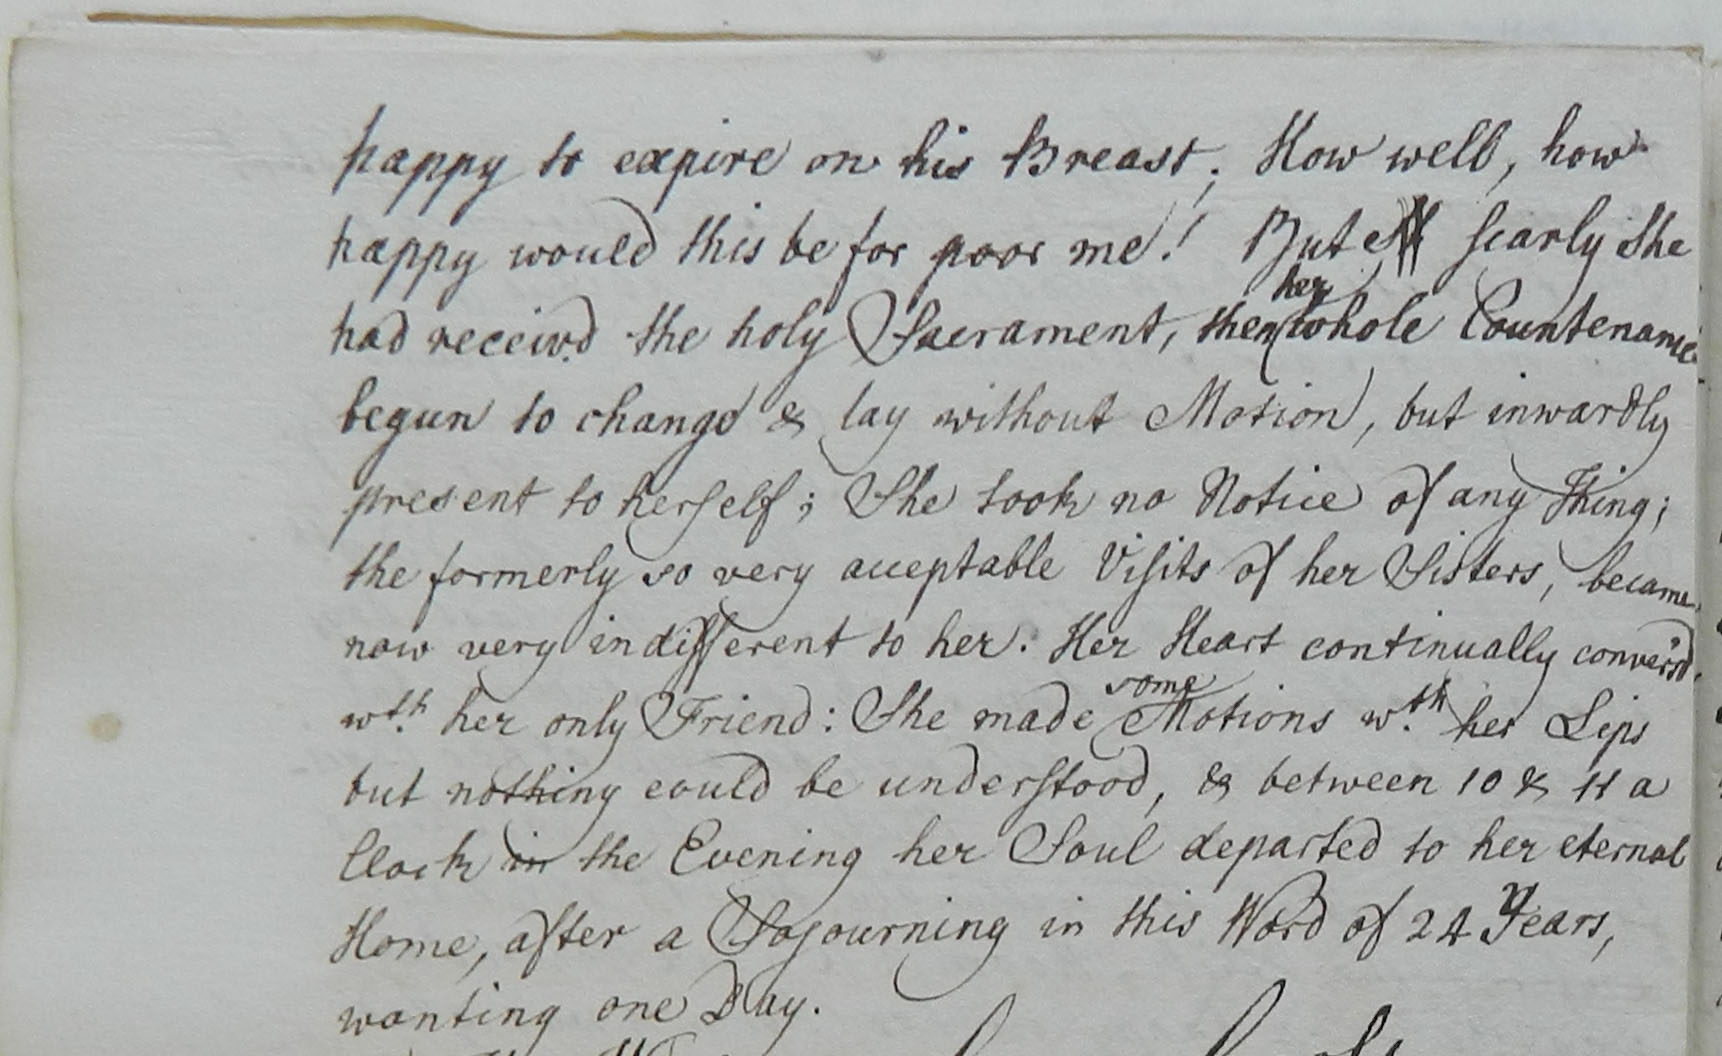 happy to expire on his Breast; How well, how
happy would this be for poor me! But scarly She
had receiv'd the holy Sacrament, then her whole Countenance
begun to change & lay without Motion, but inwardly
present to herself; She took no Notice of any Thing;
the formerly so very acceptable Visits of her Sisters, became
now very indifferent to her. Her Heart continually convers'd
wth. her only Friend: She made some Motions wth. her Lips
but nothing could be understood, & between 10 & 11 a
Clock in the Evening her Soul departed to her eternal
Home, after a Sojourning in this Word of 24 Years,
wanting one Day.